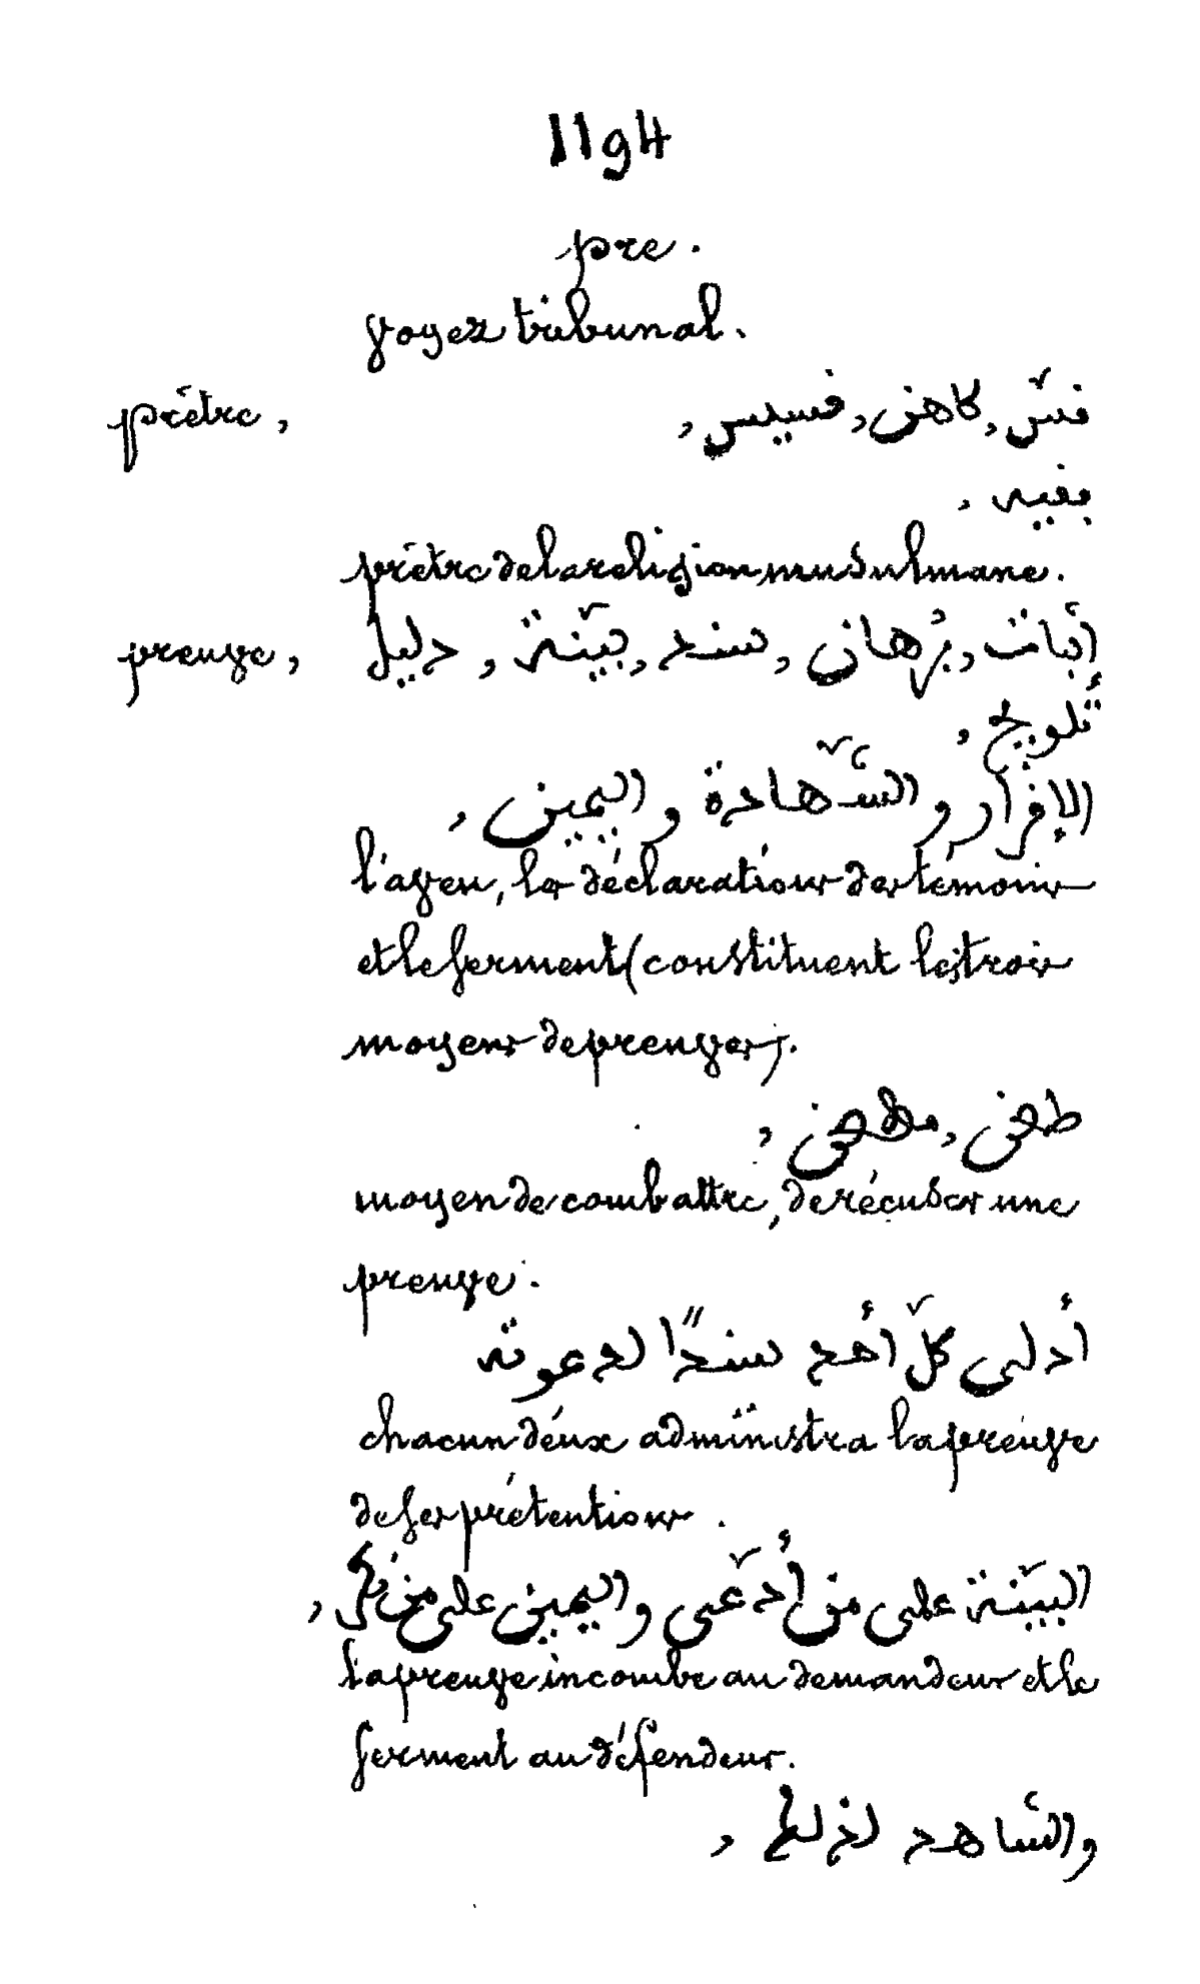 1194
pre.
voyez tribunal.
prêtre, قسّ, كاهن, قسيس,
بقيه,
prêtre de la religion musulmane.
preuve, إثبات, بُرهان, سند, بيّنة, دليل
تلويح,
الإقرار والشّهادة واليمين,
l'aveu, les déclarations des témoins
et le serment (constituent les trois
moyens de preuves).
طعن, مطعن,
moyen de combattre, de récuser une
preuve.
أدلى كلّ أحد سندًا لدعوته
chacun d'eux administra la preuve
de ses prétentions.
البيّنة على من أدّعى واليمين على من نكر,
la preuve incombe au demandeur et le
serment au défendeur.
والشّاهد لذلك,